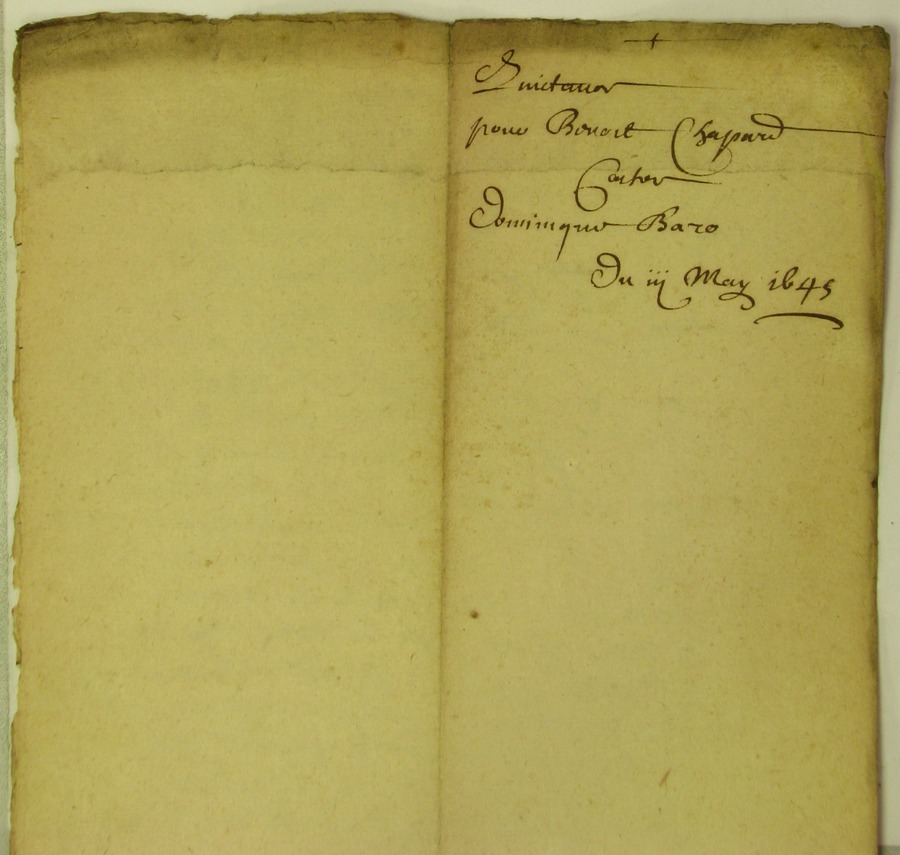 Quictance
pour Benoit Chapard
Contre
Dominique Baro
Du iij May 1645